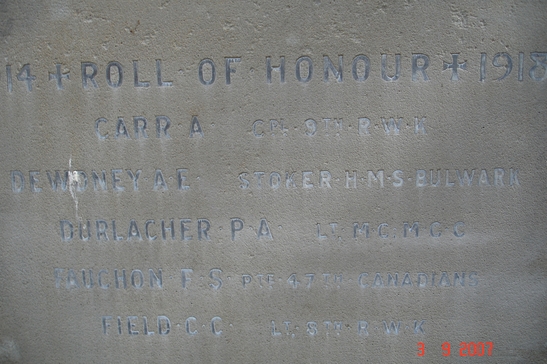 14 + ROLL OF · HONOUR + 1918
CARR A CPL 9TH R·W·K
DEWDNEY A E STOKER·H·M·S·BULWARK
DURLACHER·P·A LT M C, M G C
FAUCHON F·S PTE 47TH CANADIANS
FIELD·C·C LT R·W·K
3 9 2007